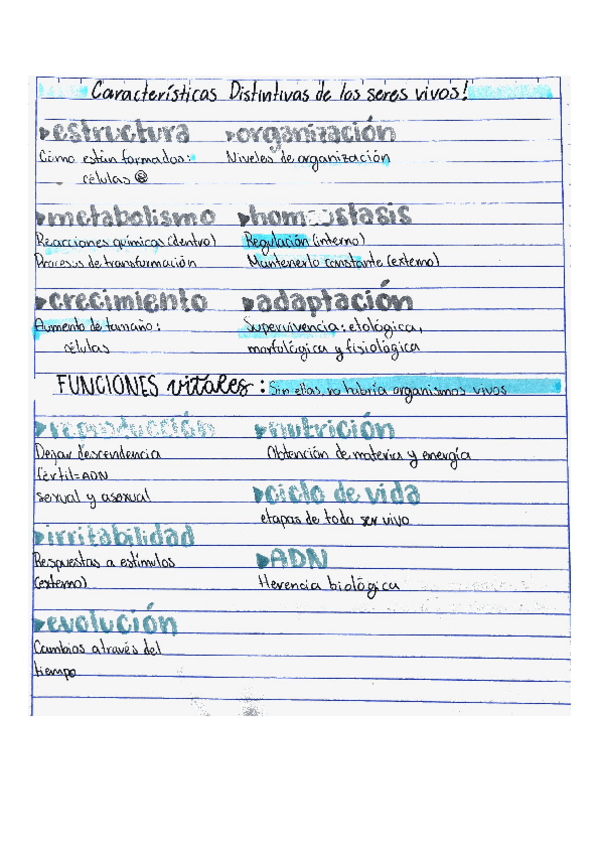 Características Distintivas de los seres vivos!
▸estructura ▸organización
Cómo están formados: Niveles de organización
células
▸metabolismo ▸homeostasis
Reacciones químicas (dentro) Regulación (interno)
Procesos de transformación Mantenerlo constante (externo)
▸crecimiento ▸adaptación
Aumento de tamaño: Supervivencia: etológica,
células morfológica y fisiológica
FUNCIONES vitales: Sin ellas no habría organismos vivos
▸reproducción ▸nutrición
Dejar descendencia Obtención de materia y energía
fértil=ADN
sexual y asexual ▸ciclo de vida
etapas de todo ser vivo
▸irritabilidad
Respuestas a estímulos ▸ADN
(externo) Herencia biológica
▸evolución
Cambios através del
tiempo